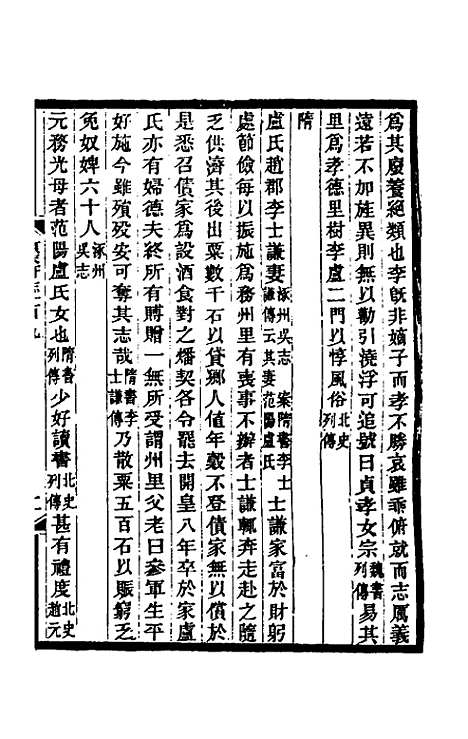 為其廢養絕類也李旣非嫡子而孝不勝哀雖乖俯就而志厲義
遠若不加旌異則無以勸引澆浮可追號曰貞孝女宗魏書列傳易其
里為孝德里樹李盧二門以惇風俗北史列傳
隋
盧氏趙郡李士謙妻涿州吳志 案隋書李士謙傳云其妻范陽盧氏士謙家富於財躬
處節儉每以振施為務州里有喪事不辦者士謙輒奔走赴之隨
乏供濟其後出粟數千石以貸鄉人值年穀不登債家無以償於
是悉召債家為設酒食對之燔契各令罷去開皇八年卒於家盧
氏亦有婦德夫終所有賻贈一無所受謂州里父老曰參軍生平
好施今雖殞歿安可奪其志哉隋書李士謙傳乃散粟五百石以賑窮乏
免奴婢六十人涿州吳志
元務光母者范陽盧氏女也隋書列傳少好讀書北史列傳甚有禮度北史趙元